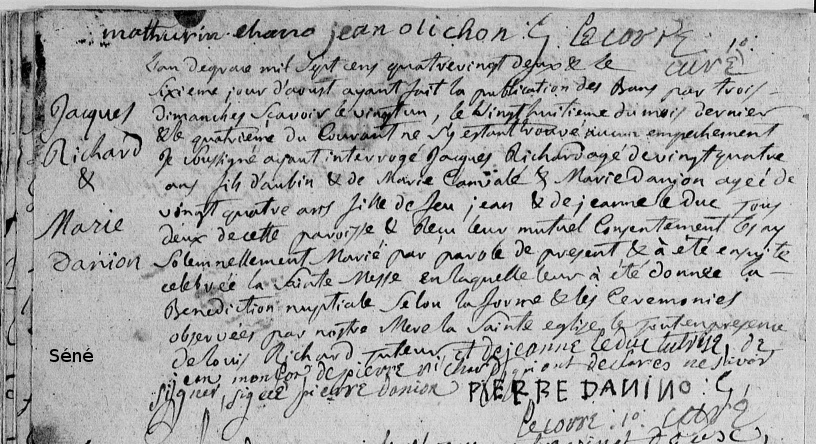 mathurin chano jean olichon : G. lecorre 10.
Lan degrace mil Sept cens quatrevingt deux & le curé
Sixieme jour d'aoust ayant fait la publication des Bans par trois
dimanches Scavoir le vingtun, le vingthuitieme du mois dernier
Jacques & le quatrieme du Courant ne s'y estant trouvé aucun empechement
Richard Je soussigné ayant interrogé Jacques Richard agé de vingt quatre
& ans fils d'aubin & de Marie & Marie danion ageé de
Marie vingt quatre ans fille de feu jean & de jeanne le duc tous
deux de cette paroisse & Reçu leur mutuel Consentement les ay
danion Solemnellement Marié par parole de present & à été ensuite
celebreé la Sainte Messe en laquelle leur à été donneé la
Benediction nuptiale Selon la forme & les Ceremonies
observées par nostre Mere la Sainte eglise le tout en presence
Séné de Louis Richard tuteur, et de jeanne le duc tutrise, de
jean de pierre richard qui ont declarés ne sçavoir
signer, signé pierre danion PIERRE DANINO : G.
lecorre : 10. curé